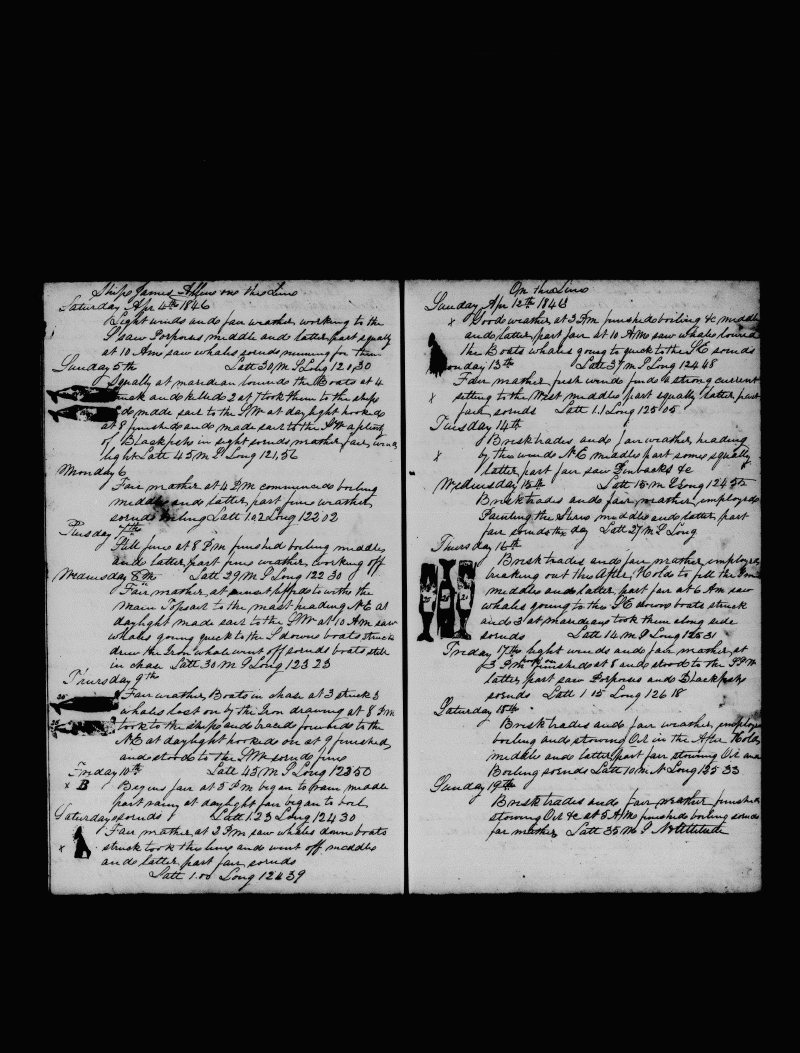 Ship James Allen on the Line
Saturday Apr 4th 1846
Light winds and fair weather working to the
S saw Porpoises middle and latter part squally
at 10 Am saw whales sounds running for them
Sunday 5th Latt 30 M S Long 120,30
Squally at meridian lowered the Boats at 4
struck and killed 2 at 7 took them to the ships
made sail to the SW at daylight hooked
at 8 finished and made sail to the SW a plenty
of Blackfish in sight sounds weather fair, wind
light Latt 45 M S Long 121,56
Monday 6
Fair weather at 4 PM commenced boiling
middle and latter part fine weather
sounds boiling Latt 1.02 Long 122 02
Tuesday 7th
Still fine at 8 P.m finished boiling middle
and latter part fine weather, working off
Wednesday 8th Latt 29 M S Long 122 30
Fair weather, at sunset with the
Main Topsail to the mast heading NE at
daylight made sail to the SW at 10 Am saw
whales going quick to the S down boats struck
drew the Iron whale went off sounds boats still
in chase Latt 30 M S Long 123 23
Thursday 9th
Fair weather Boats in chase at 3 struck 3
whales lost on by the Iron drawing at 8 P.m
took to the ships and braced forwards to the
NE at daylight hooked on at 9 finished,
and stood to the SW sounds fine
Friday 10th Latt 43 M S Long 123 50
x B Begins fair at 5 P.m began to rain middle
part rainy at daylight fair began to boil
Saturday sounds Latt 1.23 Long 124 30
Fair weather, at 2 P.m saw whales down boats
x struck took the line and went off middle
and latter part fair, sounds
Latt 1.00 Long 124 39
On the Line
Sunday Apr 12th 1846
x Good weather at 3 Am finished boiling &c middle
and latter part fair at 10 Am saw whales lowered
the Boats whales going to quick to the SE sounds
Monday 13th Latt 37 M S Long 124 48
Fair weather fresh winds a strong current
x setting to the West middle part squally latter part
fair, sounds Latt 1.1 Long 125 05
Tuesday 14th
Brisk trades and fair weather heading
x by the wind NE middle part some squally
latter part fair saw Finbacks &c
Wednesday 15th Latt 15 M S Long 124 52
Brisk trades and fair weather, employed
Painting the Stern middle and latter, part
fair sounds the day Latt 27 M S Long
Thursday 16th
Brisk trades and fair weather, employed
breaking out the After, Hold to fill the
middle and latter, part fair at 6 Am saw
whales going to the SE down boats struck
and 3 at meridian took them along side
sounds Latt 14 M S Long 125 31
Friday 17th light winds and fair weather at
3 P.m finished at 8 and stood to the
latter, part saw Porpoises and Blackfish
sounds Latt 1 15 Long 126 18
Saturday 18th
Brisk trades and fair weather, employed
boiling and stowing Oil in the After Hold,
middle and latter part fair stowing Oil and
Boiling sounds Latt 10 M N Long 125 33
Sunday 19th
Brisk trades and fair weather finished
stowing Oil &c at 5 Am finished boiling sounds
fair weather Latt 35 M S